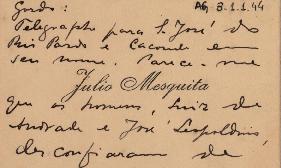 AG 8-1.1.94
Gordo:
Telegrapho para S. José do
Rio Pardo e Caconde em
seu nome. Parece-me
Julio Mesquita
que os homens, Luiz de
Andrade e José Leopoldino,
desconfiaram de